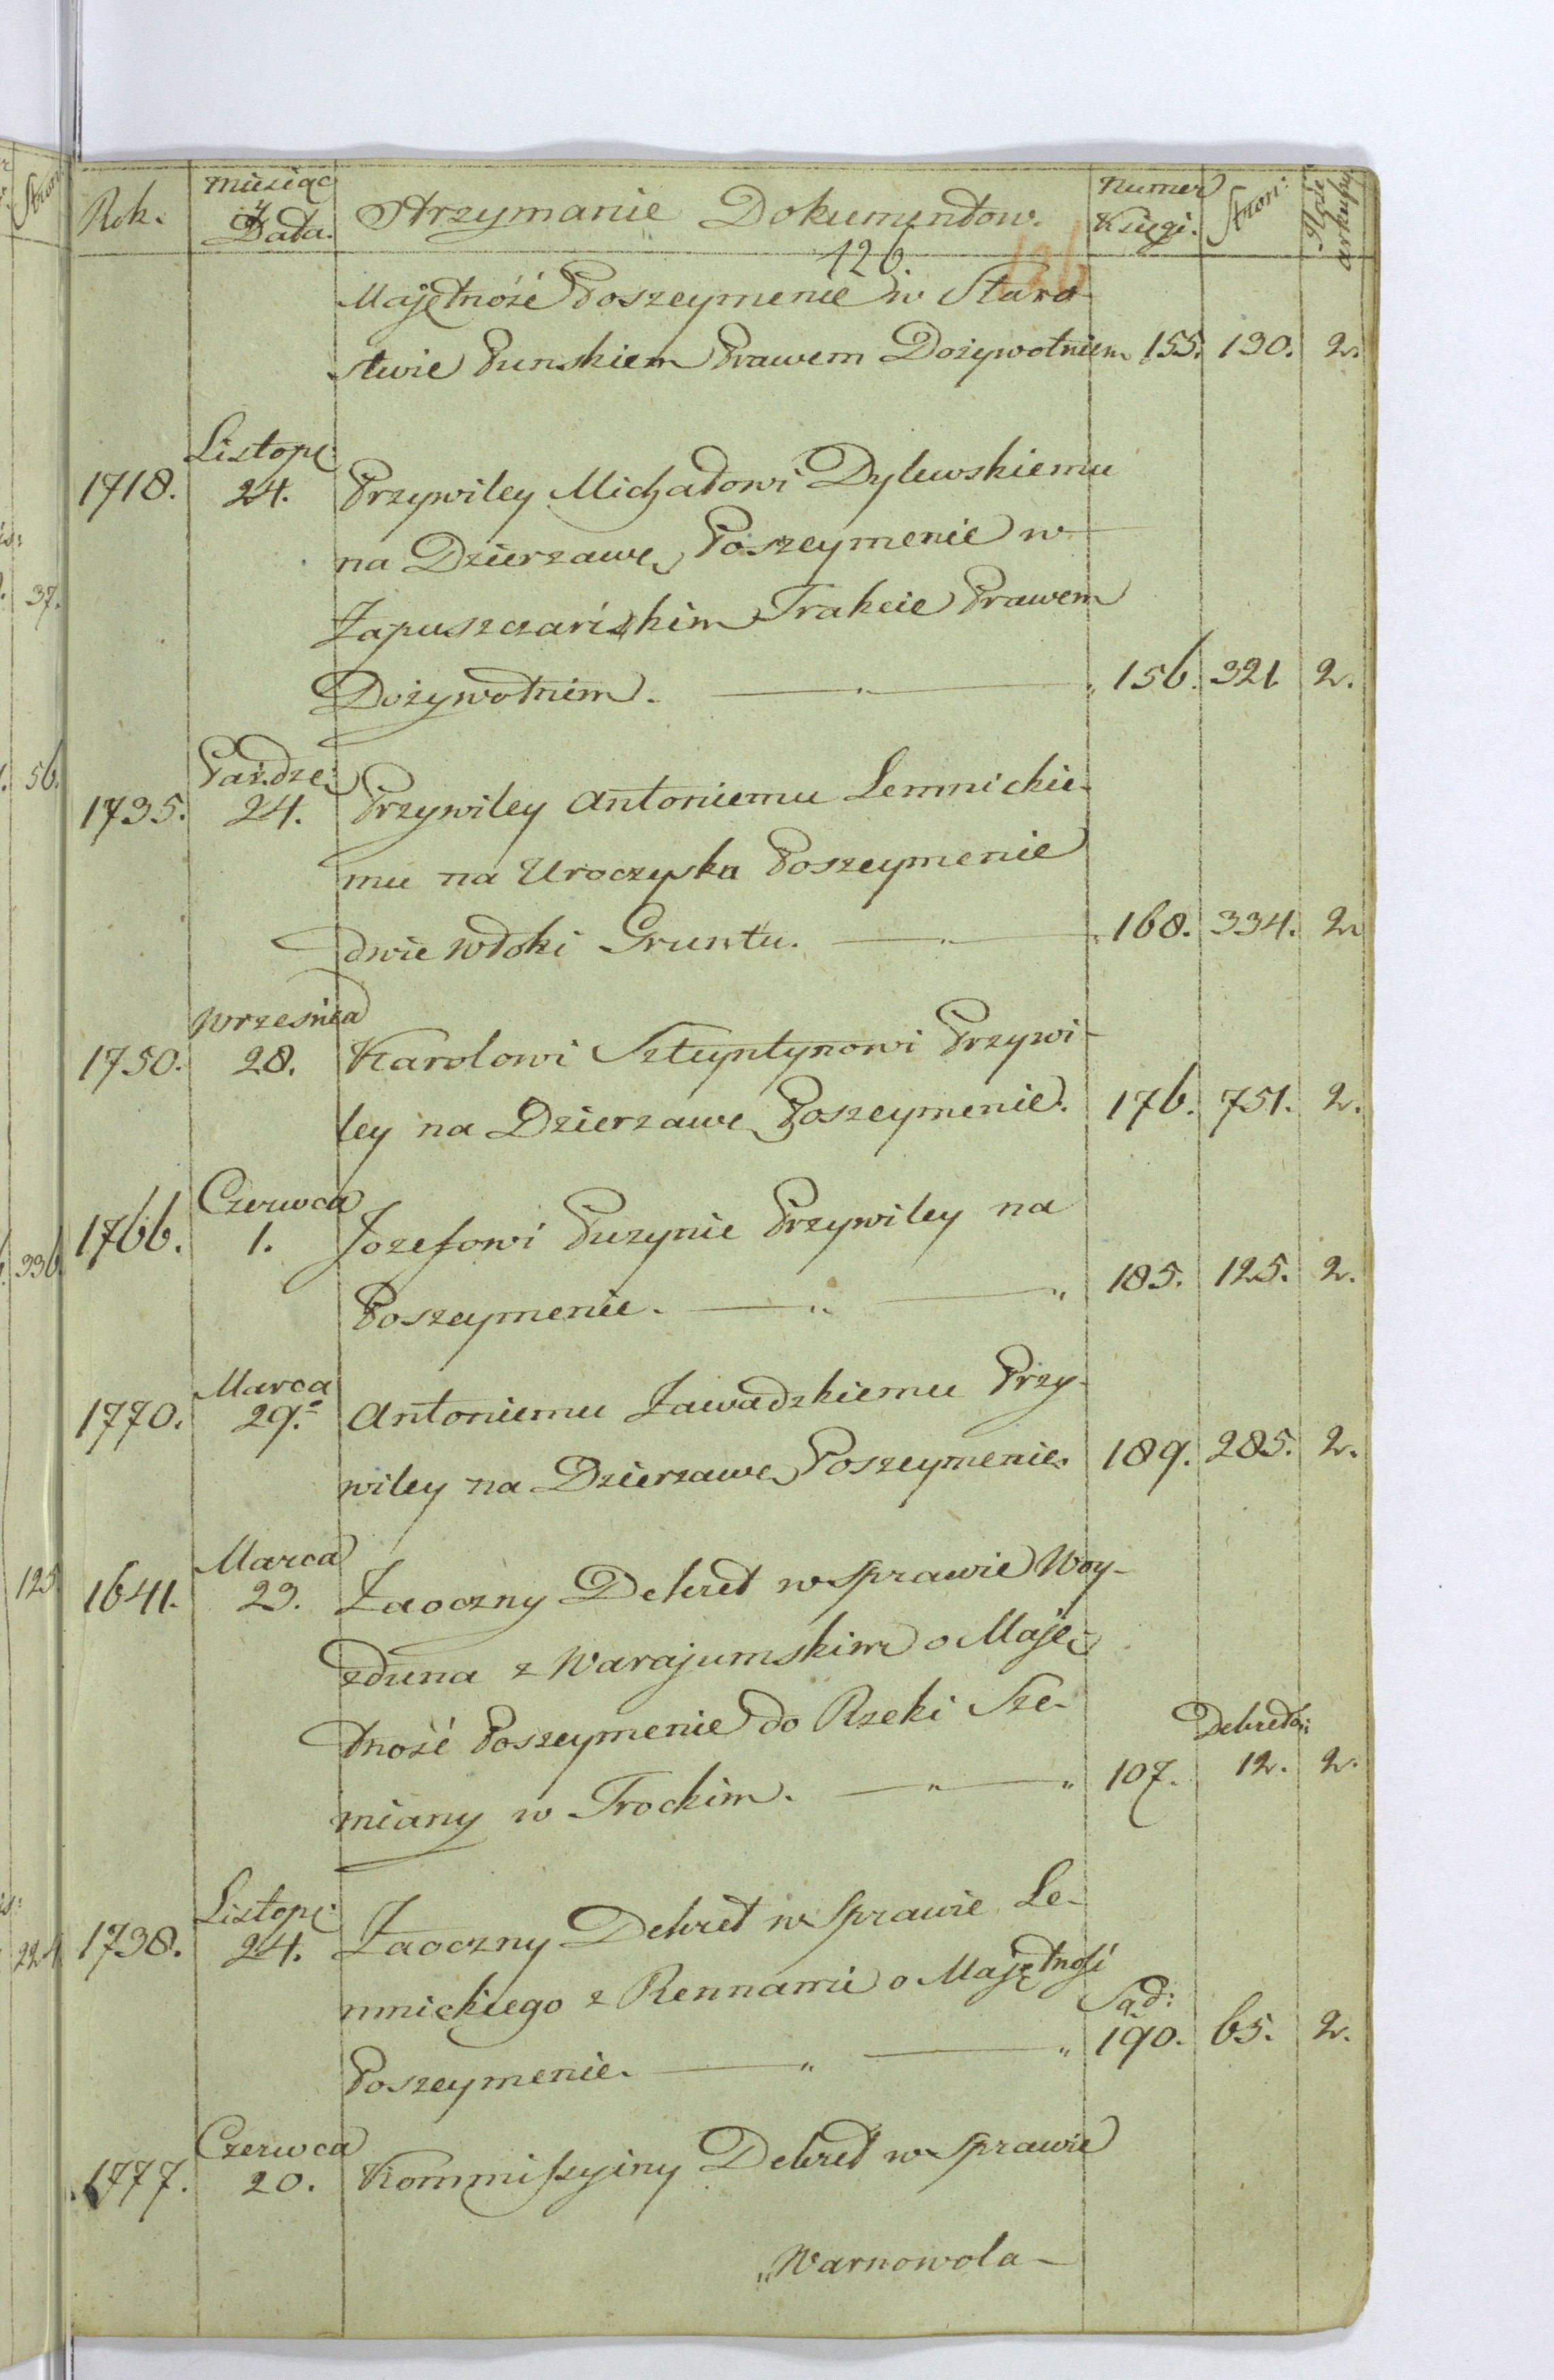 Rok. | Miesiąc y Data. | Otrzymanie Dokumentow. | Numer Księgi. | Stron:
126. 126
Majętność Poszeymenie w Staro-
stwie Punskiem Prawem Dożywotniem 155. 190. 2.
Listop:
1718. 24. Przywiley Michałowi Dylewskiemu
na Dzierzawę Poszeymenie w
Zapuszczańskim Trakcie Prawem
Dożywotnim. — „ — „ 156. 321 2.
Paźdze:
1735. 24. Przywiley Antoniemu Lemnickie-
mu na Uroczyska Poszeymenie
dwie Włoki Gruntu. — „ — „ 168. 334. 2.
Wrzesnia
1750. 28. Karolowi Szteyntynowi Przywi-
ley na Dzierzawę Poszeymenie. 176. 751. 2.
Czerwca
1766. 1. Jozefowi Puzynie Przywiley na
Poszeymenie. — „ — „ 185. 125. 2.
Marca
1770. 29. Antoniemu Zawadzkiemu Przy-
wiley na Dzierzawę Poszeymenie. 189. 285. 2.
Marca
1641. 23. Zaoczny Dekret w sprawie Woy-
zduna z Warajumskim o Maję-
tność Poszeymenie do Rzeki Sze-
miany w Trockim. — „ — „ 107. Dekretów: 12. 2.
Listop:
1738. 24. Zaoczny Dekret w Sprawie Le-
mnickiego z Rennami o Majętność
Poszeymenie. — „ — „ Sąd: 190. 65. 2.
Czerwca
1777. 20. Kommissyiny Dekret w Sprawie
„Warnowola-